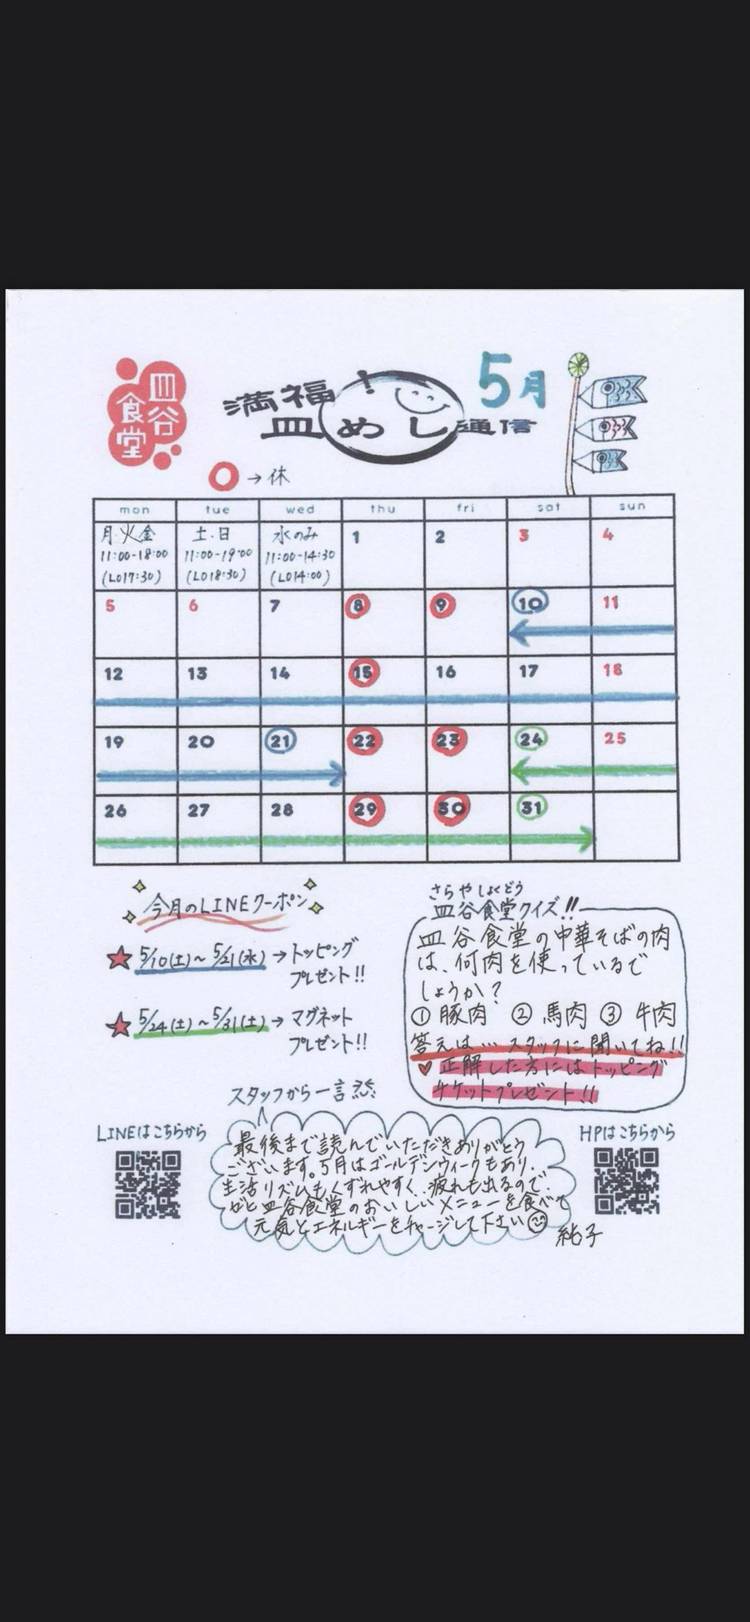 皿谷
食堂
満福!
皿めし通信
5月
○→休
mon tue wed thu fri sat sun
月火金 土.日 水のみ 1 2 3 4
11:00-18:00 11:00-19:00 11:00-14:30
(LO17:30) (LO18:30) (LO14:00)
5 6 7 8 9 10 11
12 13 14 15 16 17 18
19 20 21 22 23 24 25
26 27 28 29 30 31
今月のLINEクーポン
★5/10(土)~5/21(水)→トッピング
プレゼント!!
★5/24(土)~5/31(土)→マグネット
プレゼント!!
さらやしょくどう
皿谷食堂クイズ!!
皿谷食堂の中華そばの肉
は、何肉を使っているで
しょうか?
①豚肉 ②馬肉 ③牛肉
答えは…スタッフに聞いてね!!
♡正解した方にはトッピング
チケットプレゼント!!
スタッフから一言
LINEはこちらから
最後まで読んでいただきありがとう
ございます。5月はゴールデンウィークもあり、
生活リズムもくずれやすく、疲れも出るので、
ゼヒ皿谷食堂のおいしいメニューを食べて
元気とエネルギーをチャージして下さい
純子
HPはこちらから